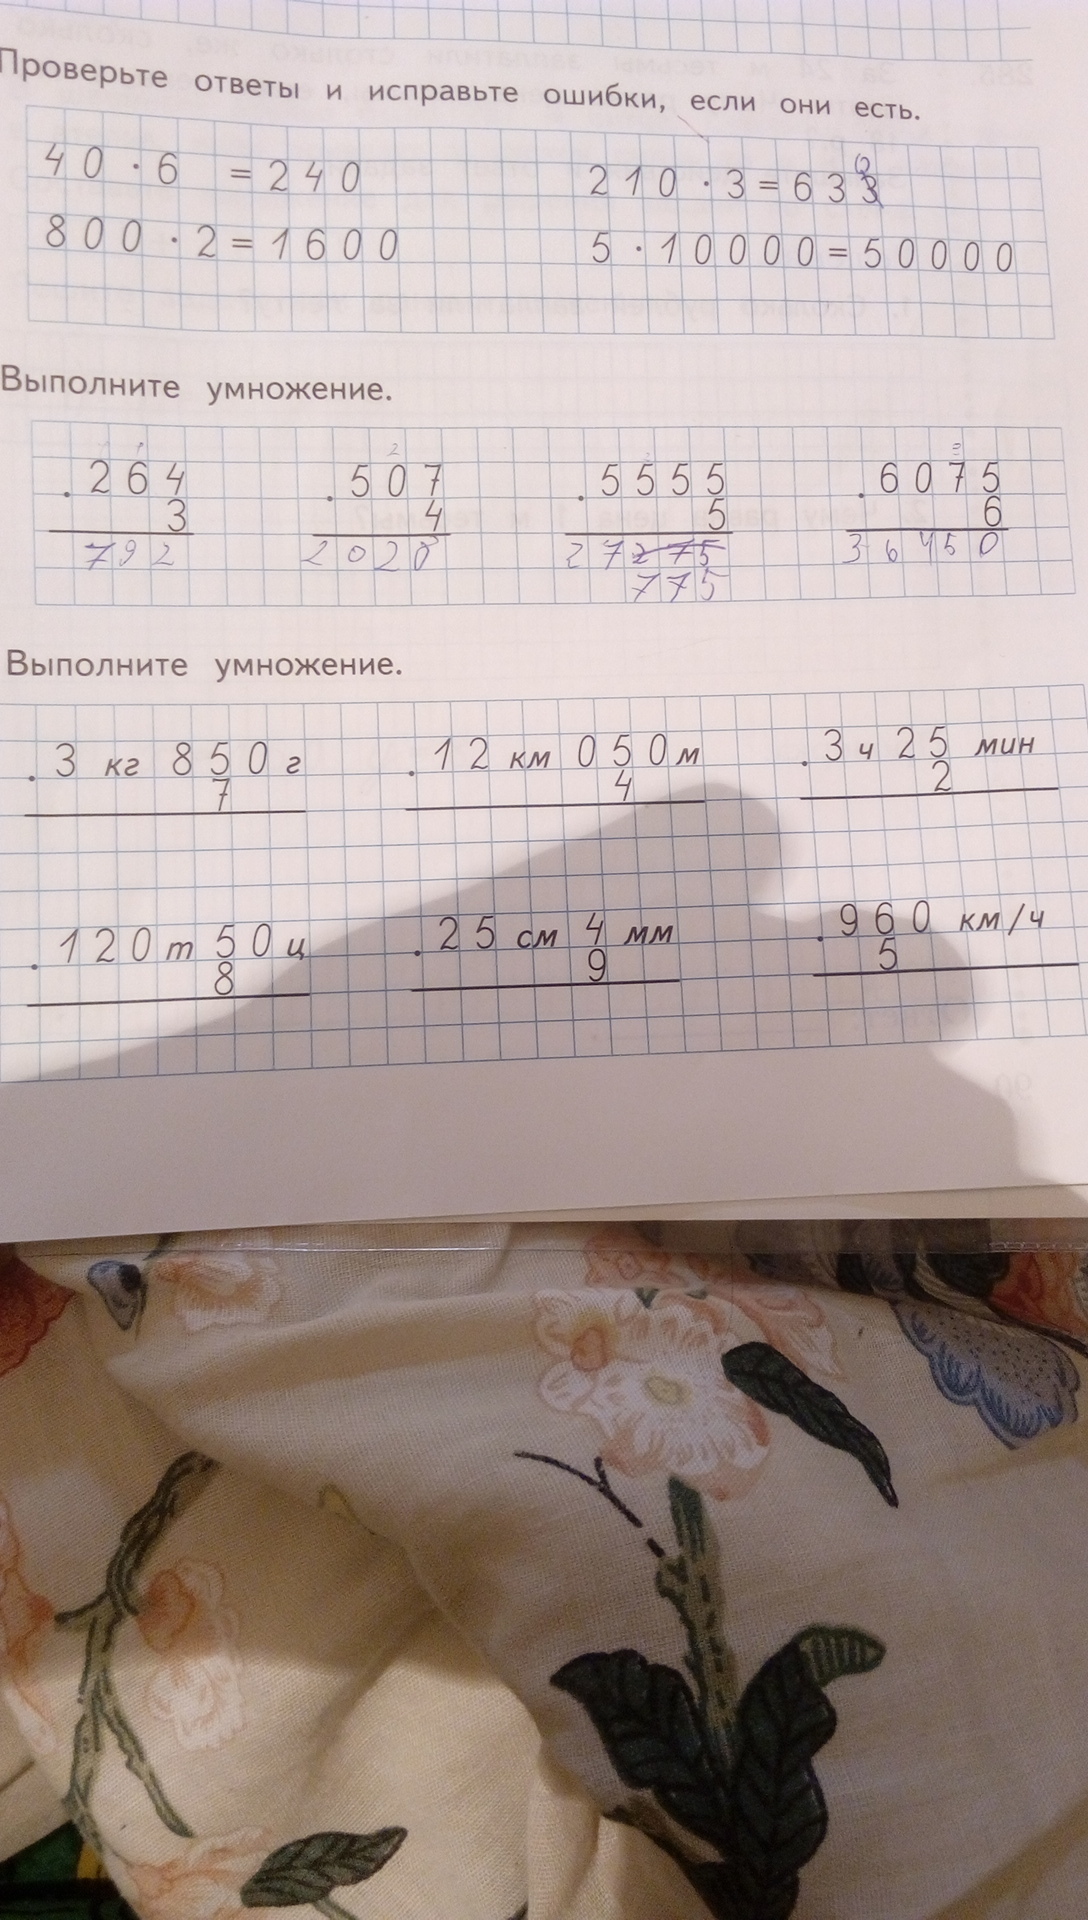 Проверьте ответы и исправьте ошибки, если они есть.
40 · 6 = 240 210 · 3 = 633 0
800 · 2 = 1600 5 · 10000 = 50000
Выполните умножение.
2
. 264 . 507 . 5555 . 6075
3 4 5 6
792 2028 27275 36450
775
Выполните умножение.
. 3 кг 850 г . 12 км 050 м . 3 ч 25 мин
7 4 2
. 120 т 50 ц . 25 см 4 мм . 960 км/ч
8 9 5